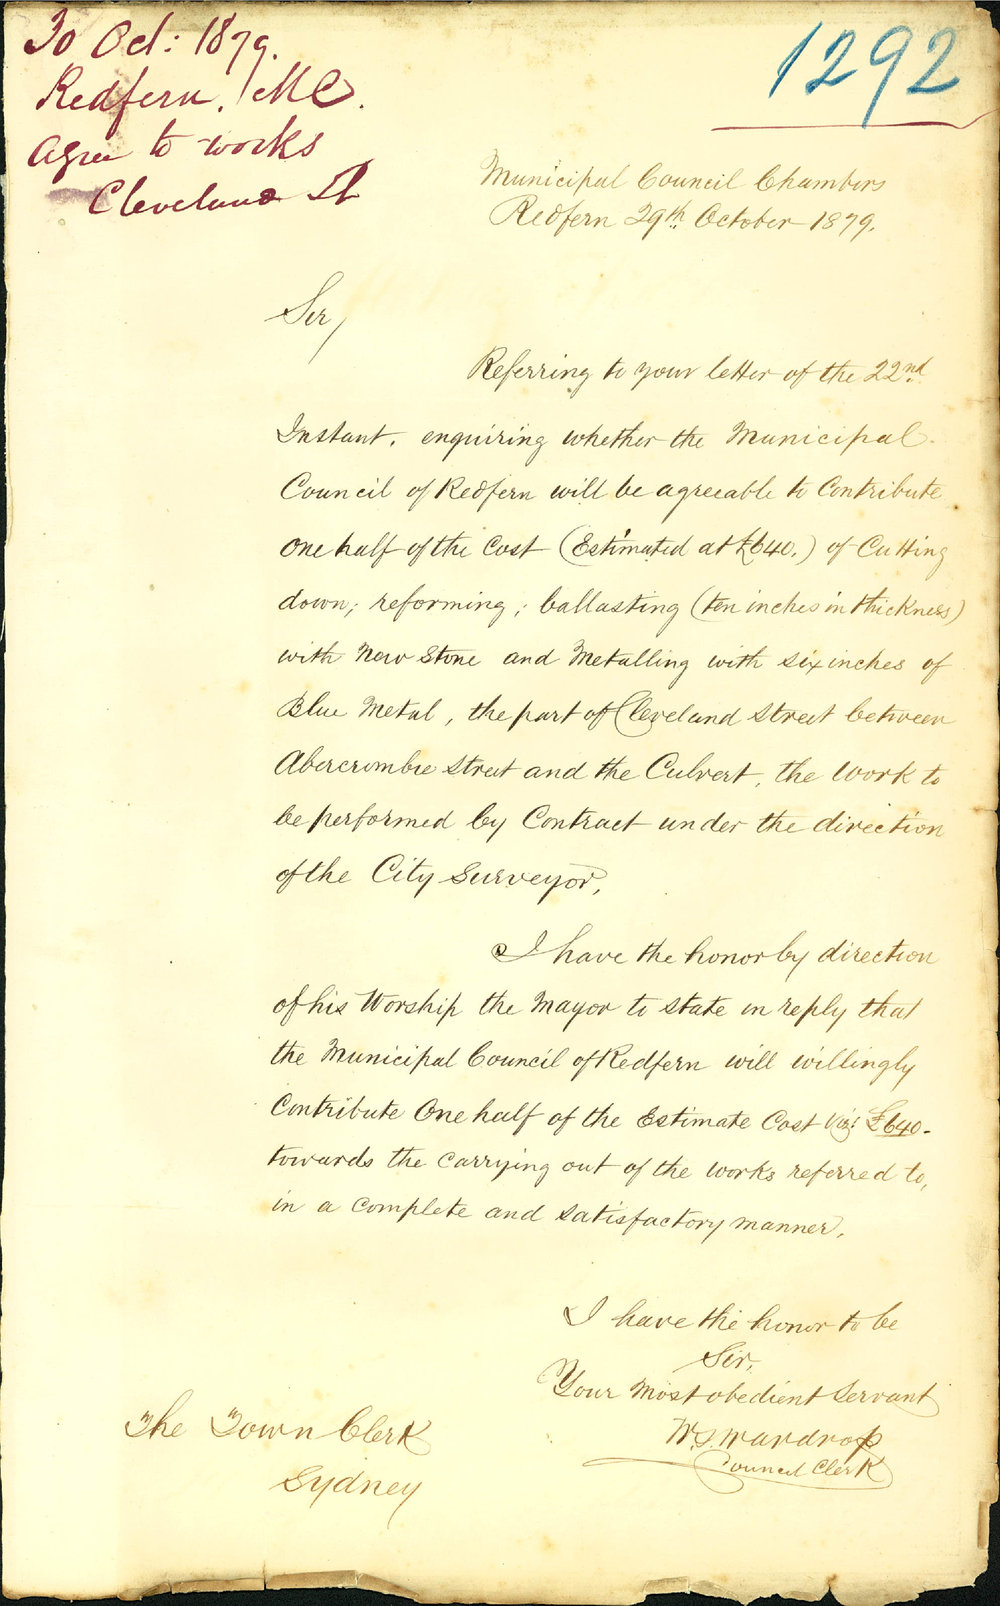 30 Oct: 1879.
Redfern. M C.
agree to works
Cleveland St
1292
Municipal Council Chambers
Redfern 29th October 1879.
Sir,
Referring to your letter of the 22nd
Instant. enquiring whether the Municipal
Council of Redfern will be agreeable to Contribute
one half of the Cost (Estimated at £640.) of Cutting
down; reforming; ballasting (ten inches in thickness)
with New Stone and Metalling with six inches of
Blue Metal, the part of Cleveland Street between
Abercrombie Street and the Culvert, the work to
be performed by Contract under the direction
of the City Surveyor,
I have the honor by direction
of his Worship the Mayor to state in reply that
the Municipal Council of Redfern will willingly
Contribute One half of the Estimate Cost Viz: £640-
towards the carrying out of the works referred to,
in a complete and satisfactory manner.
I have the honor to be
Sir,
Your most obedient Servant
W. S. Wardrop
Council Clerk
The Town Clerk
Sydney